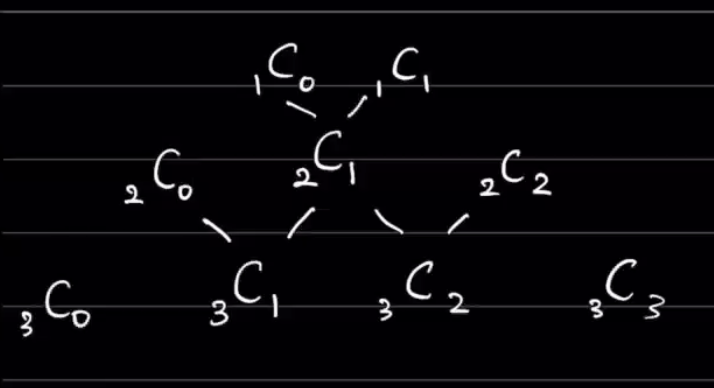 ₁C₀ ₁C₁
₂C₀ ₂C₁ ₂C₂
₃C₀ ₃C₁ ₃C₂ ₃C₃